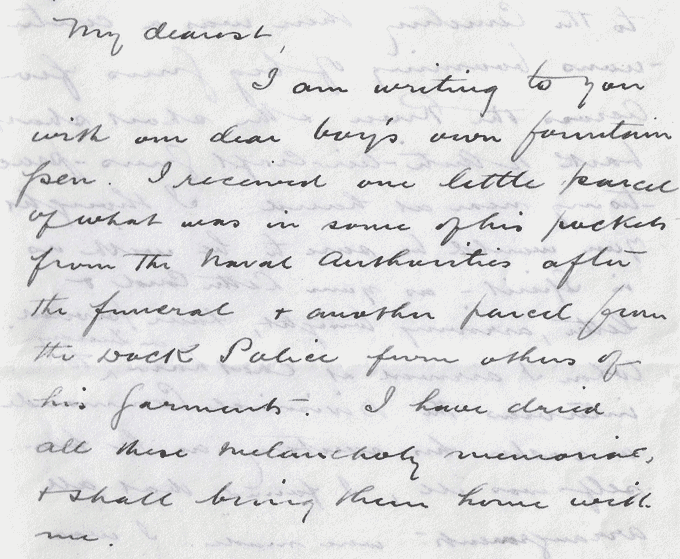 My dearest,
I am writing to you
with our dear boy's own fountain
pen. I received one little parcel
of what was in some of his pockets
from the Naval Authorities after
the funeral & another parcel from
the Dock Police from others of
his garments. I have dried
all these melancholy memorials,
& shall bring them home with
me.